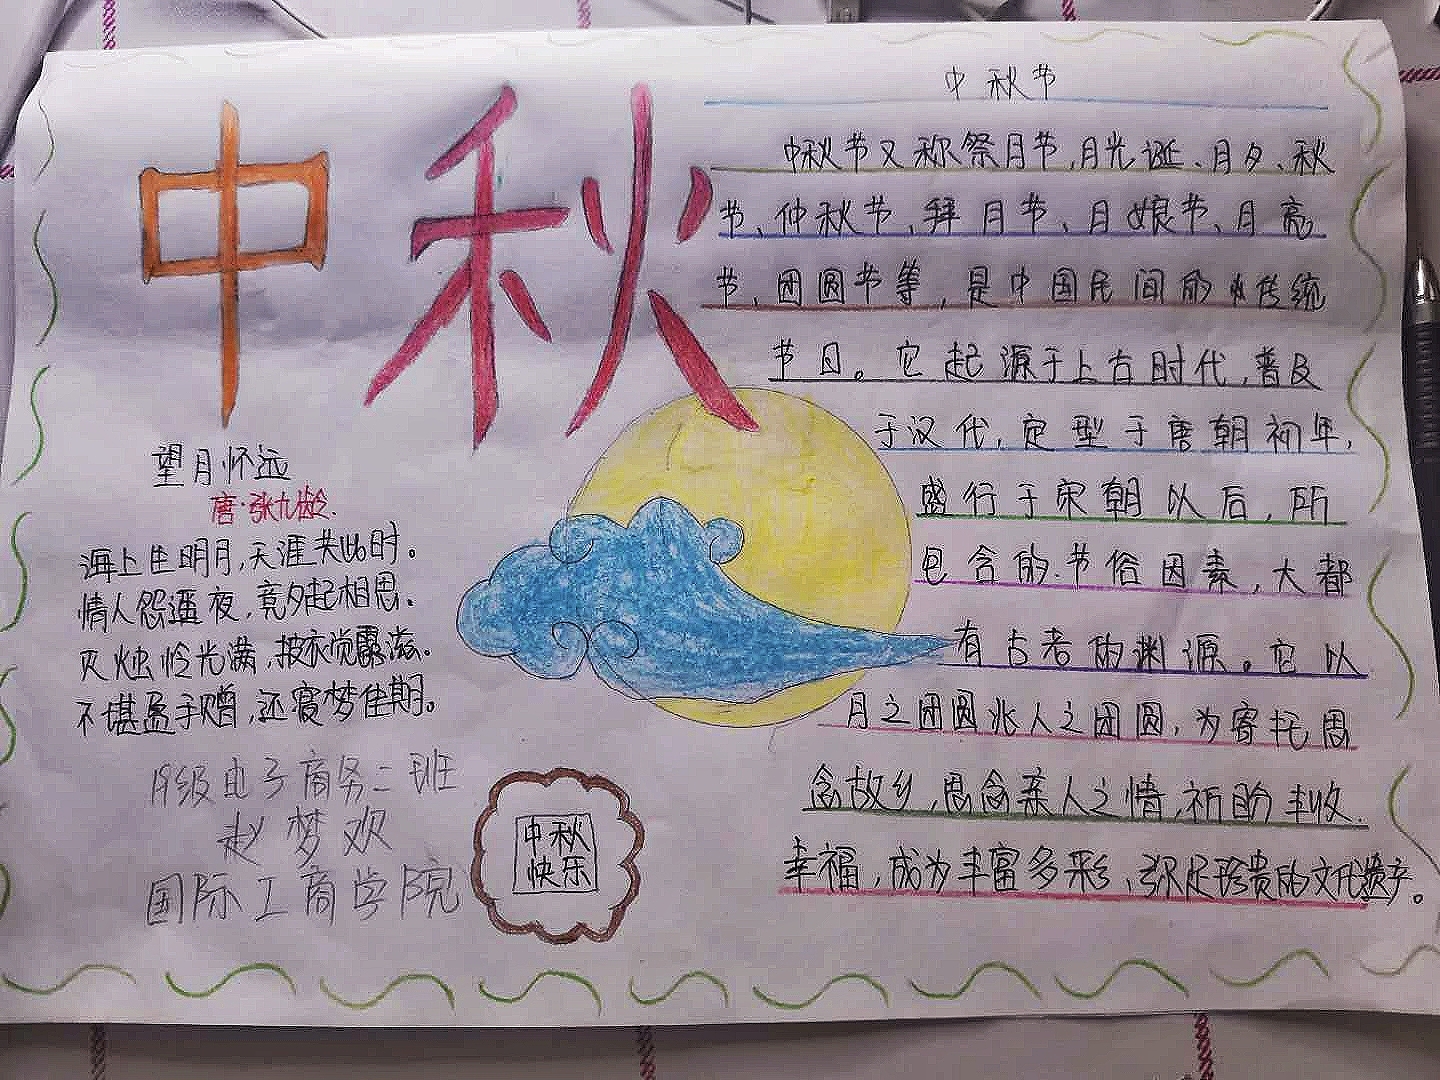 中秋
望月怀远
唐·张九龄.
海上生明月,天涯共此时。
情人怨遥夜,竟夕起相思.
灭烛怜光满,披衣觉露滋.
不堪盈手赠,还寝梦佳期。
级电子商务二班
赵梦欢
国际工商学院
中秋
快乐
中秋节
中秋节又称祭月节,月光诞、月夕、秋
节、仲秋节、拜月节、月娘节、月亮
节、团圆节等,是中国民间的传统
节日。它起源于上古时代,普及
于汉代,定型于唐朝初年,
盛行于宋朝以后,所
包含的节俗因素,大都
有古老的渊源。它以
月之团圆兆人之团圆,为寄托思
念故乡,思念亲人之情,祈盼丰收.
幸福,成为丰富多彩、弥足珍贵的文化遗产。